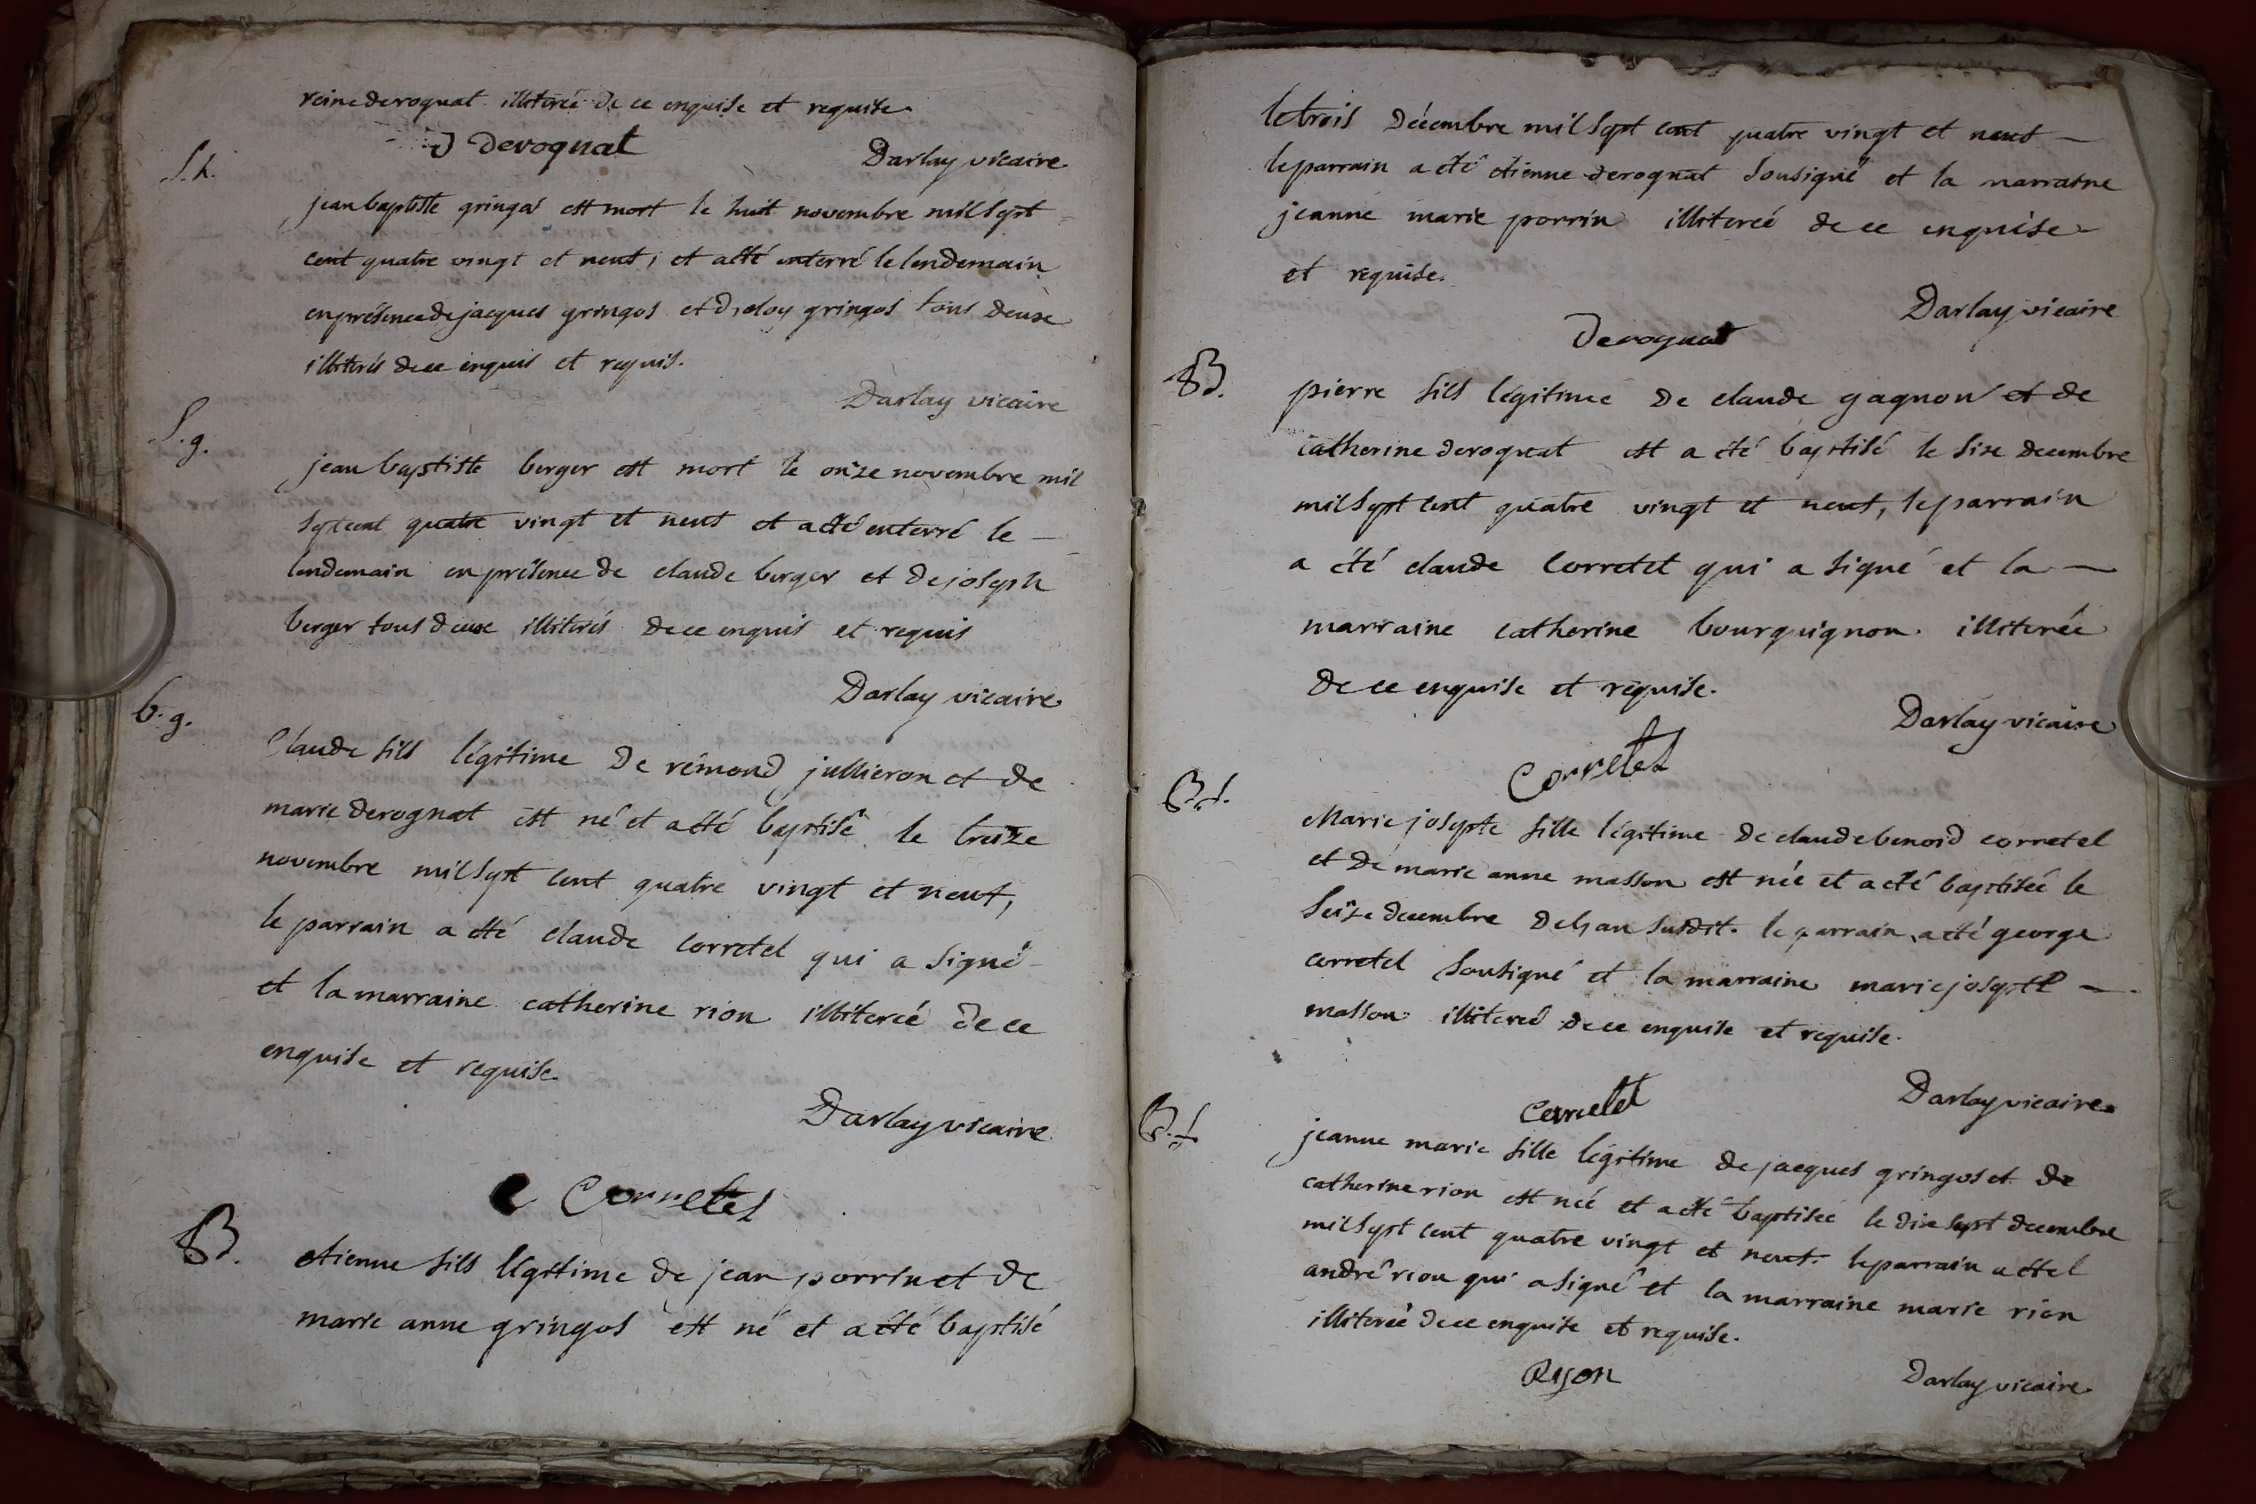 reine derognat illiterée de ce enquise et requise
J Derognat
Darlay vicaire
S.h.
jean baptiste gringos est mort le huit novembre mil sept
cent quatre vingt et neuf, et a été enterré le lendemain
en présence de jacques gringos et d'eloy gringos tous deux
illiterés de ce enquis et requis.
Darlay vicaire
S.g.
jean baptiste berger est mort le onze novembre mil
sept cent quatre vingt et neuf et a été enterré le
lendemain en présence de claude berger et de joseph
berger tous deux illiterés de ce enquis et requis
Darlay vicaire
b.g.
Claude fils légitime De rémond jullieron et de
marie derognat est né et a été baptisé le treize
novembre mil sept cent quatre vingt et neuf,
le parrain a été claude corretel qui a signé
et la marraine catherine rion illiterée de ce
enquise et requise
Darlay vicaire
C Corretel
B.
etienne fils légitime de jean porrin et de
marie anne gringos est né et a été baptisé
le trois Décembre mil sept cent quatre vingt et neuf
le parrain a été etienne derognat sousigné et la marraine
jeanne marie porrin illiterée de ce enquise
et requise.
Darlay vicaire
Derognat
B.
pierre fils légitime De claude gagnon et de
catherine derognat est a été baptisé le six decembre
mil sept cent quatre vingt et neuf, le parrain
a été claude corretel qui a signé et la
marraine catherine bourguignon illiterée
de ce enquise et requise.
Darlay vicaire
Corretel
B.f.
Marie josepte fille légitime de claude benoid corretel
et de marie anne masson est née et a été baptisée le
seize decembre de l'an susdit. le parrain a été george
corretel sousigné et la marraine marie josepte
masson illiterée de ce enquise et requise.
Darlay vicaire
Corretel
B.f.
jeanne marie fille légitime de jacques gringos et de
catherine rion est née et a été baptisée le dix sept decembre
mil sept cent quatre vingt et neuf. le parrain a été
andré rion qui a signé et la marraine marie rion
illiterée de ce enquise et requise.
Ryon
Darlay vicaire